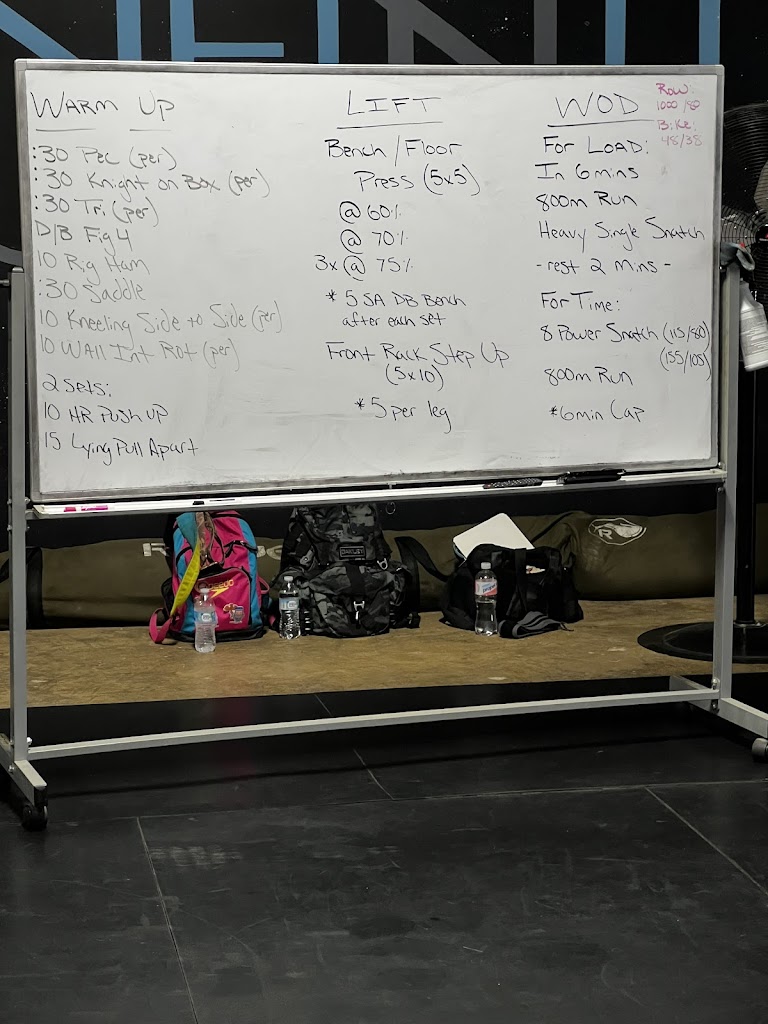 WARM UP
:30 Pec (per)
:30 Knight on Box (per)
:30 Tri (per)
D/B Fig 4
10 Rig Ham
:30 Saddle
10 Kneeling Side to Side (per)
10 Wall Int Rot (per)
2 Sets:
10 HR Push up
15 Lying Pull Apart
LIFT
Bench/Floor
Press (5x5)
@ 60%
@ 70%
3x @ 75%
* 5 SA DB Bench
after each set
Front Rack Step Up
(5x10)
* 5 per leg
WOD
Row:
1000/80
Bike:
48/38
For Load:
In 6 mins
800m Run
Heavy Single Snatch
- rest 2 mins -
For Time:
8 Power Snatch (115/80)
(155/105)
800m Run
*6min Cap
OAKLEY
speedo
R